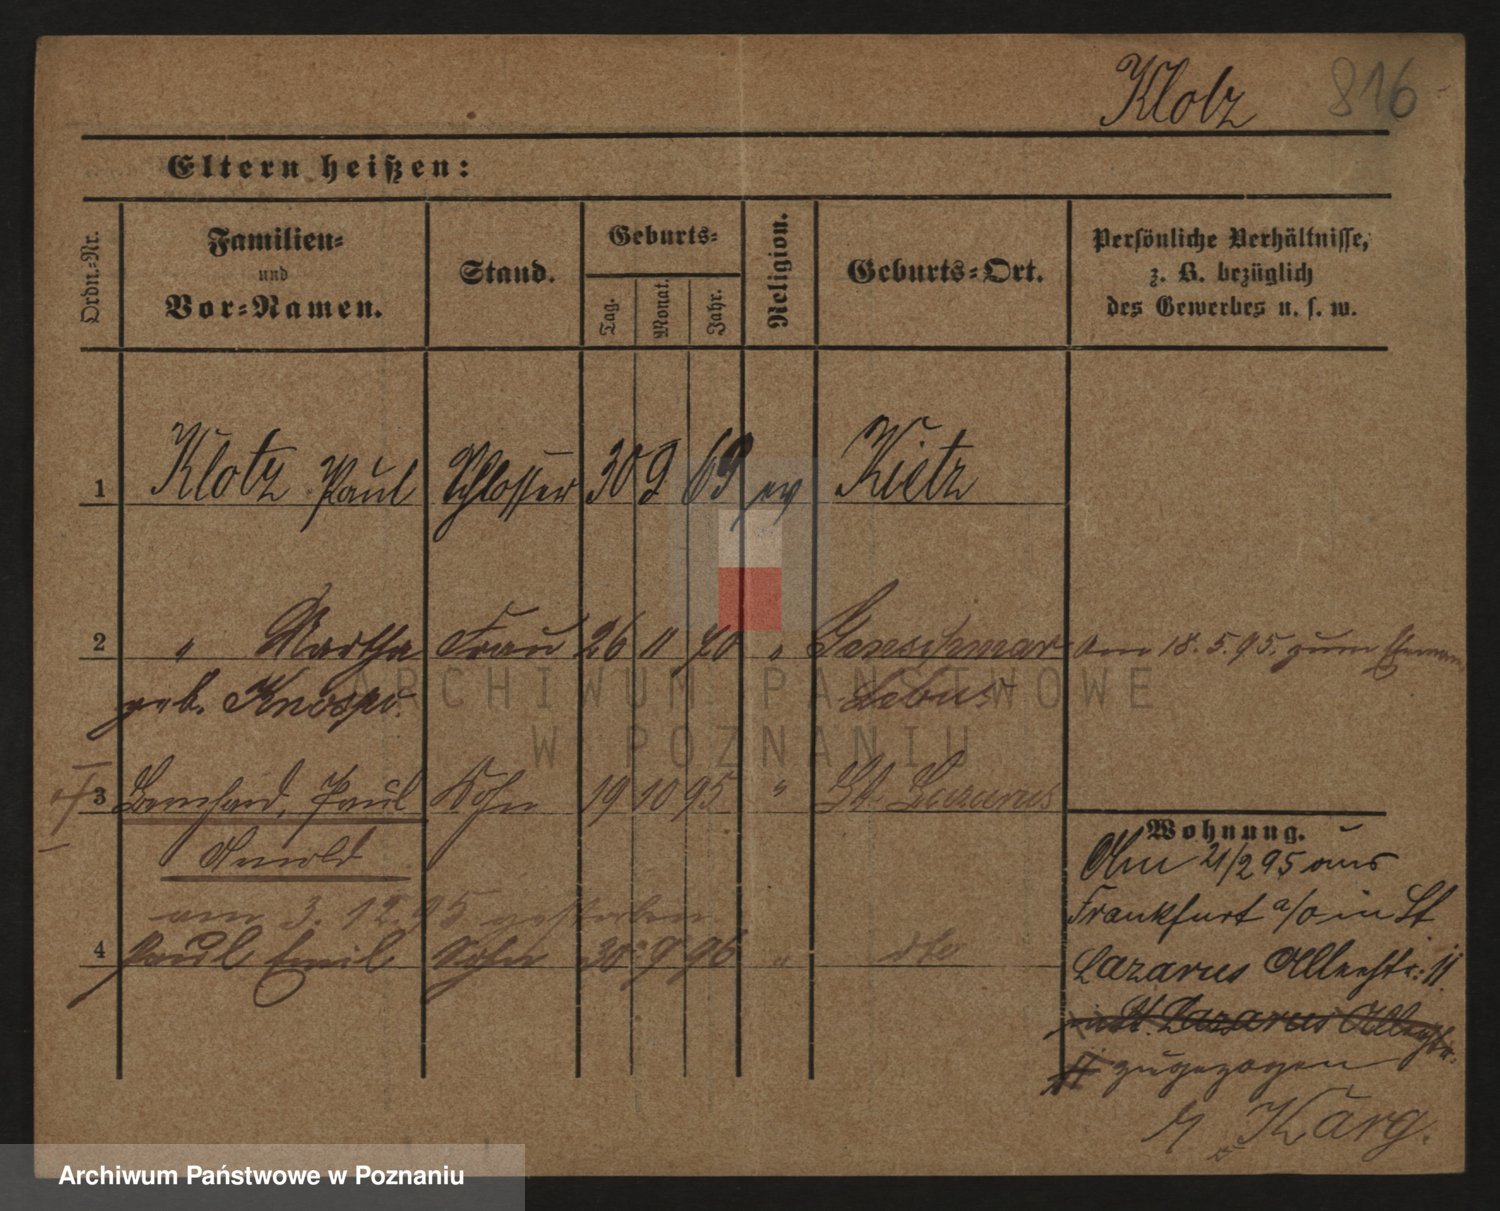 Klotz 816
Eltern heißen:
Ordn.-Nr. Familien- und Vor-Namen. Stand. Geburts- Tag. Monat. Jahr. Religion. Geburts-Ort. Persönliche Verhältnisse, z. B. bezüglich des Gewerbes u. s. w.
1 Klotz Paul Schlosser 30 9 69 ev Kietz
2 " Martha Frau 26 11 70 " Genschmar Am 18.5.95. zum
geb. Knospe. Lebus
3 Bernhard, Paul Sohn 19 10 95 " St. Lazarus
Wohnung.
Arnold Am 21/2 95 aus
am 3. 12. 95 gestorben Frankfurt a/O in St
4 Paul Emil Sohn 30 9 96 " dto
Lazarus 11.
in St. Lazarus
11 zugezogen
Karg.
ARCHIWUM PAŃSTWOWE
W POZNANIU
Archiwum Państwowe w Poznaniu